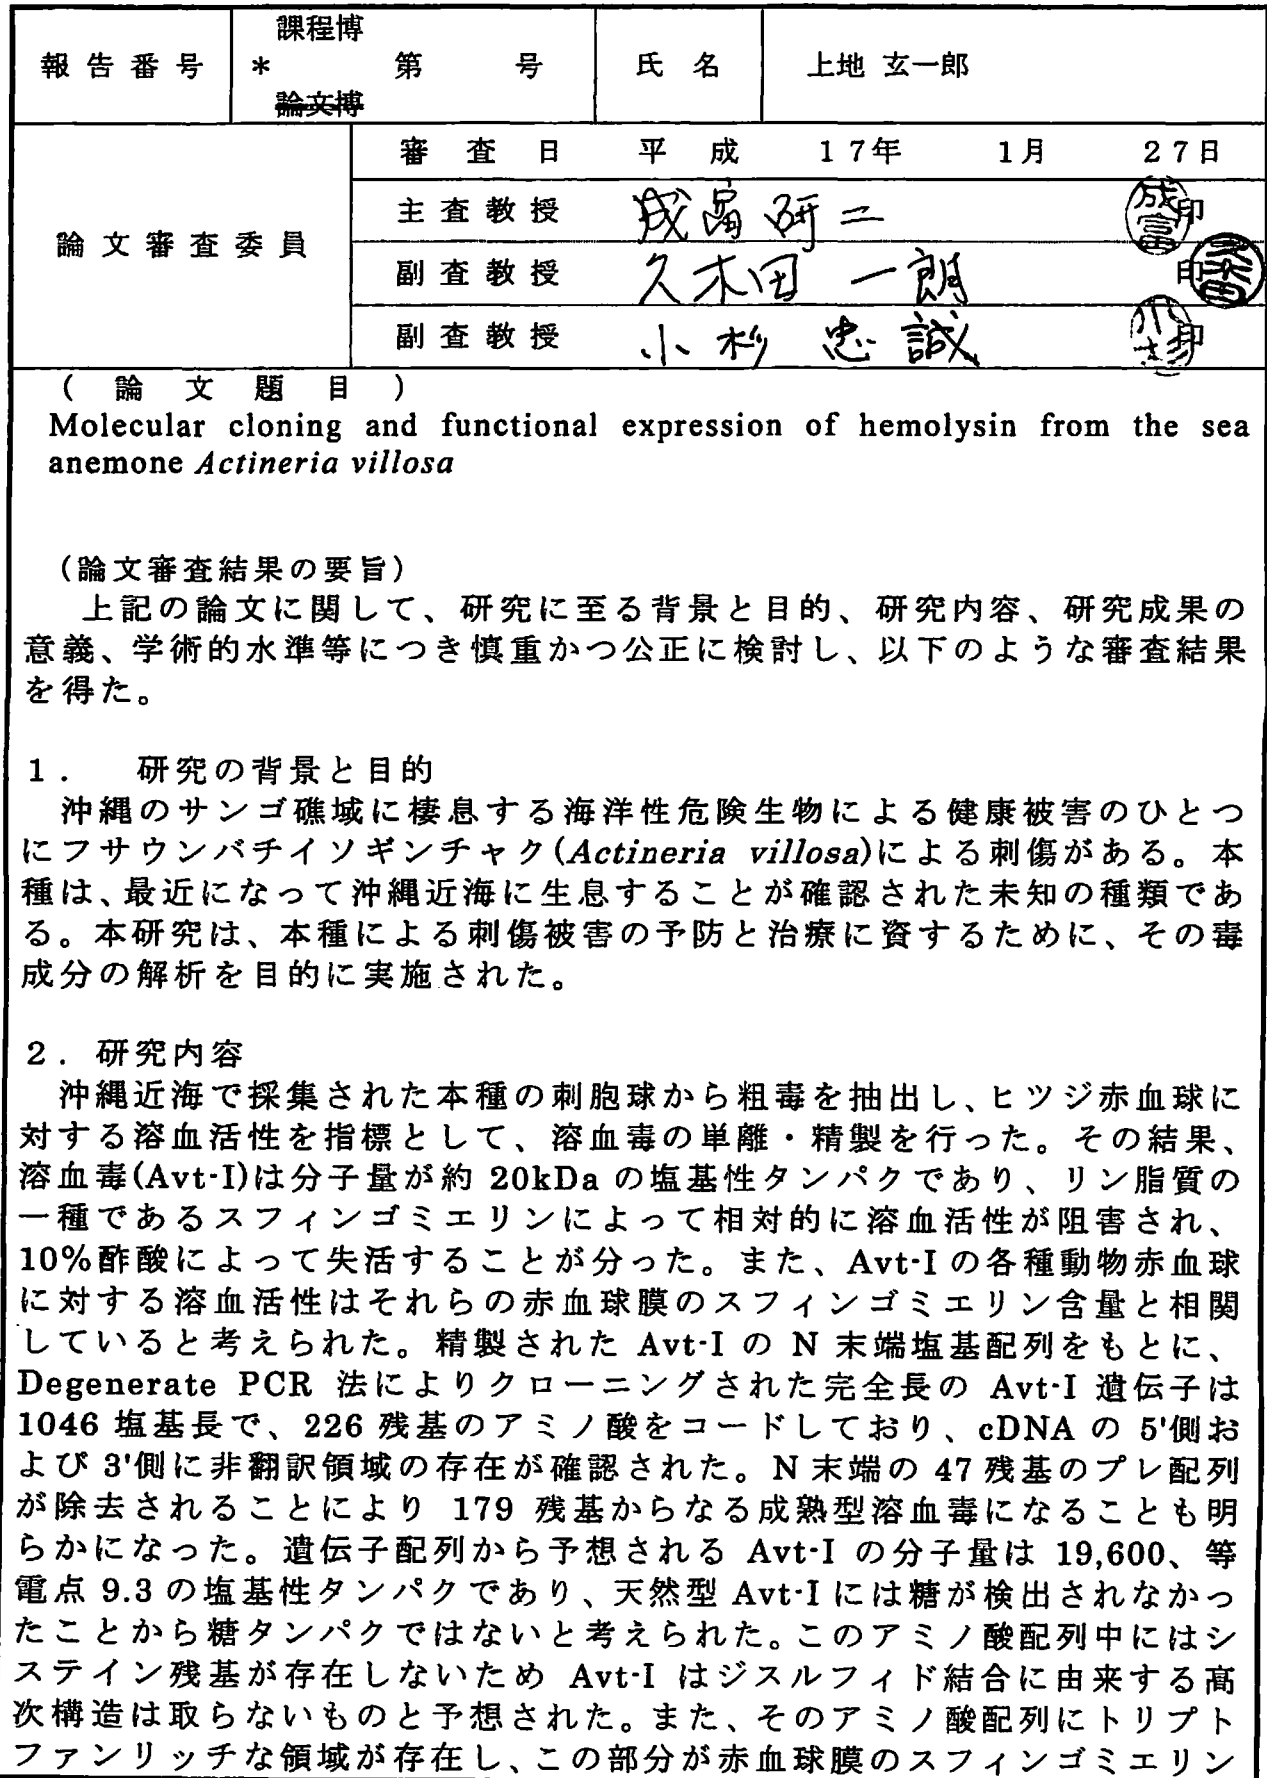 課程博
報告番号 * 第 号 氏名 上地 玄一郎
論文博
審査日 平成 17年 1月 27日
論文審査委員
主査教授 成富研二 成富 印
副査教授 久木田 一朗 印 久木田
副査教授 小杉 忠誠 小杉 印
(論文題目)
Molecular cloning and functional expression of hemolysin from the sea
anemone Actineria villosa
(論文審査結果の要旨)
上記の論文に関して、研究に至る背景と目的、研究内容、研究成果の
意義、学術的水準等につき慎重かつ公正に検討し、以下のような審査結果
を得た。
1. 研究の背景と目的
沖縄のサンゴ礁域に棲息する海洋性危険生物による健康被害のひとつ
にフサウンバチイソギンチャク(Actineria villosa)による刺傷がある。本
種は、最近になって沖縄近海に生息することが確認された未知の種類であ
る。本研究は、本種による刺傷被害の予防と治療に資するために、その毒
成分の解析を目的に実施された。
2. 研究内容
沖縄近海で採集された本種の刺胞球から粗毒を抽出し、ヒツジ赤血球に
対する溶血活性を指標として、溶血毒の単離・精製を行った。その結果、
溶血毒(Avt-I)は分子量が約 20kDa の塩基性タンパクであり、リン脂質の
一種であるスフィンゴミエリンによって相対的に溶血活性が阻害され、
10%酢酸によって失活することが分った。また、Avt-I の各種動物赤血球
に対する溶血活性はそれらの赤血球膜のスフィンゴミエリン含量と相関
していると考えられた。精製された Avt-I の N 末端塩基配列をもとに、
Degenerate PCR 法によりクローニングされた完全長の Avt-I 遺伝子は
1046 塩基長で、226 残基のアミノ酸をコードしており、cDNA の 5'側お
よび 3'側に非翻訳領域の存在が確認された。N 末端の 47 残基のプレ配列
が除去されることにより 179 残基からなる成熟型溶血毒になることも明
らかになった。遺伝子配列から予想される Avt-I の分子量は 19,600、等
電点 9.3 の塩基性タンパクであり、天然型 Avt-I には糖が検出されなかっ
たことから糖タンパクではないと考えられた。このアミノ酸配列中にはシ
ステイン残基が存在しないため Avt-I はジスルフィド結合に由来する高
次構造は取らないものと予想された。また、そのアミノ酸配列にトリプト
ファンリッチな領域が存在し、この部分が赤血球膜のスフィンゴミエリン